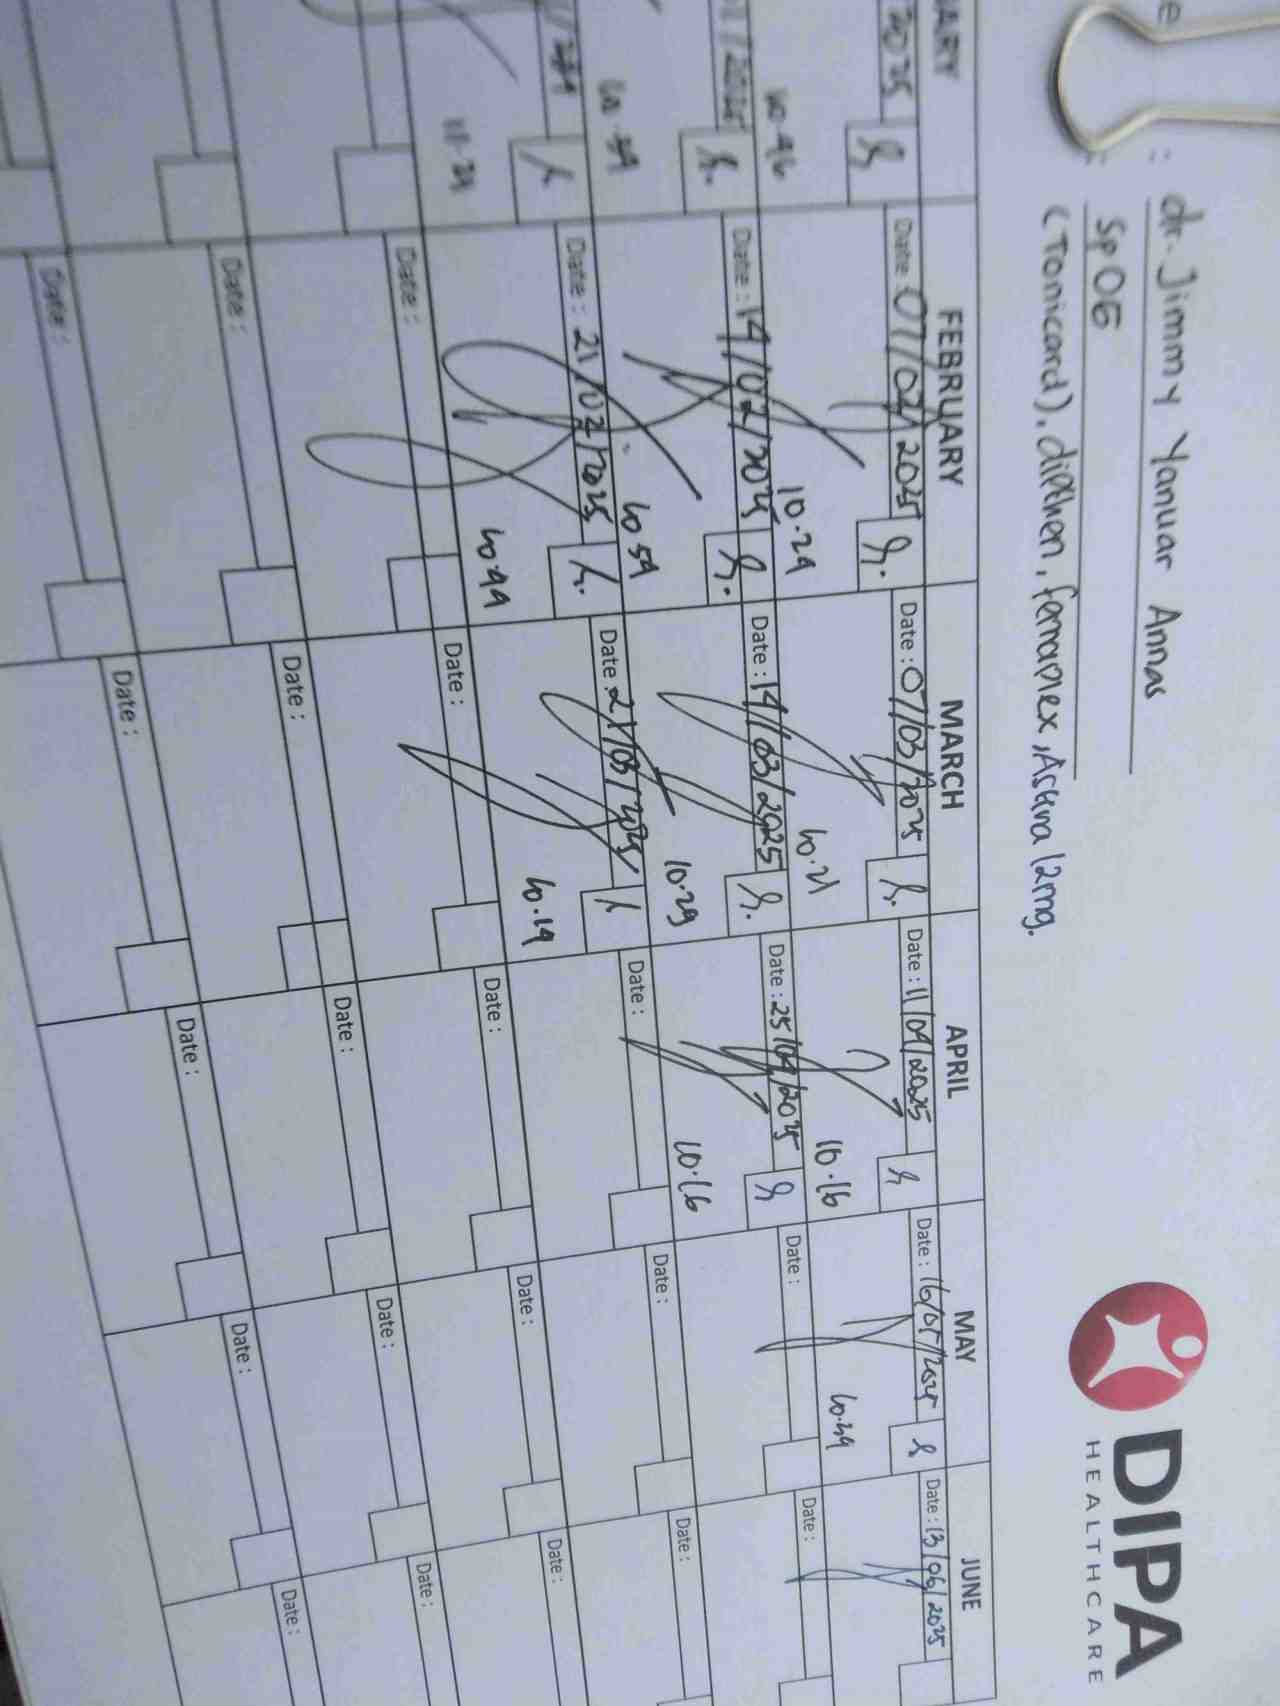 DIPA
HEALTHCARE
: dr. Jimmy Yanuar Annas
: SpOG
(Tonicard), dipthen, ferraplex, Astina 12mg.
FEBRUARY MARCH APRIL MAY JUNE
2025 Date : 07/02/2025 Date : 07/03/2025 Date : 11/04/2025 Date : 16/05/2025 Date : 13/06/2025
10.46 10.24 10.21 10.16 10.34
Date : 14/02/2025 Date : 14/03/2025 Date : 25/04/2025 Date : Date :
10.54 10.29 10.16
Date : 21/02/2025 Date : 21/03/2025 Date : Date : Date :
11.21 10.44 10.19
Date : Date : Date : Date : Date :
Date : Date : Date : Date : Date :
Date : Date : Date : Date : Date :